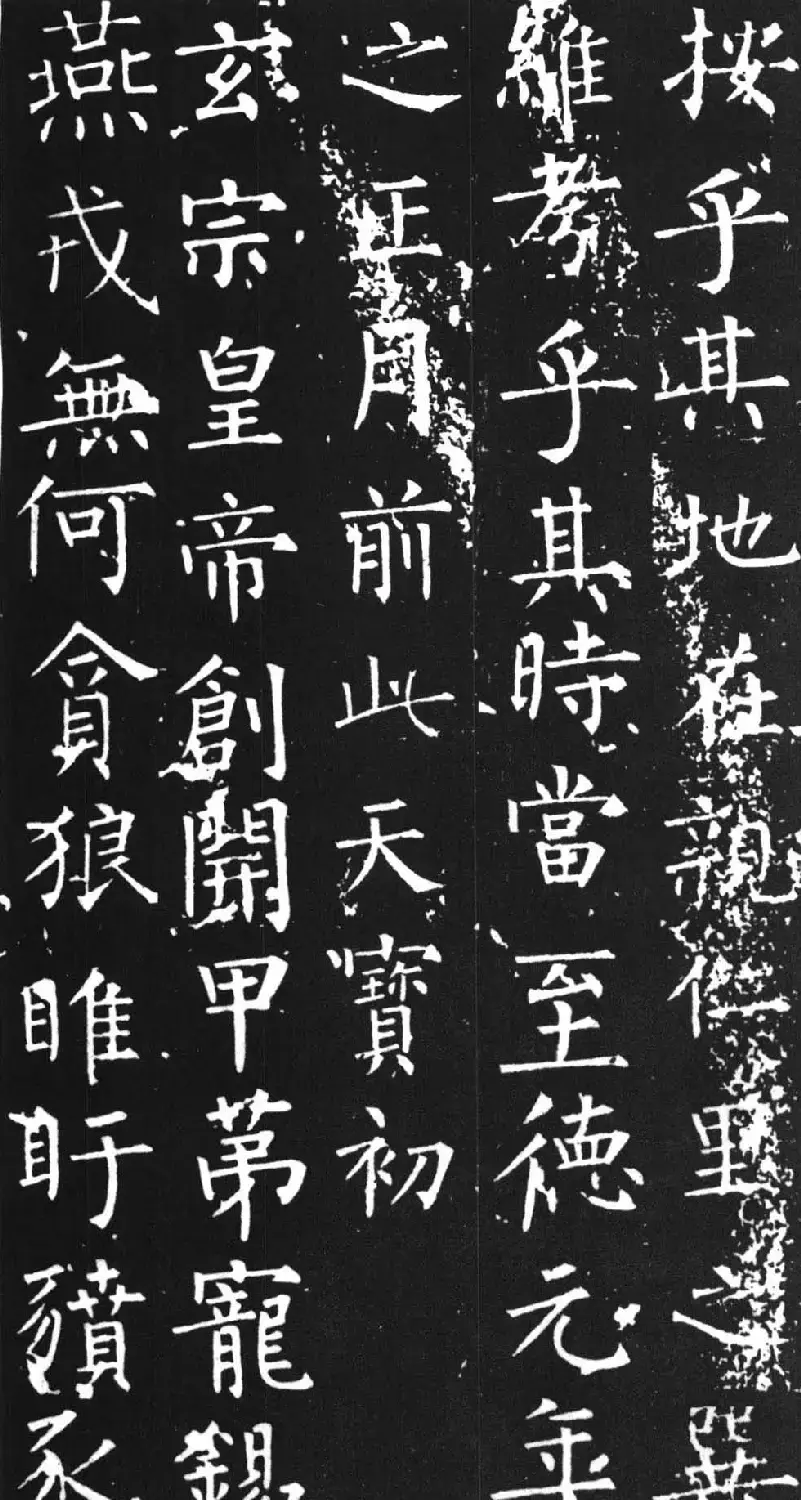 按乎其地在親仁里之巽
維考乎其時當至德元年
之正月前此天寶初
玄宗皇帝創開甲第寵錫
燕戎無何貪狼睢盱豶豕